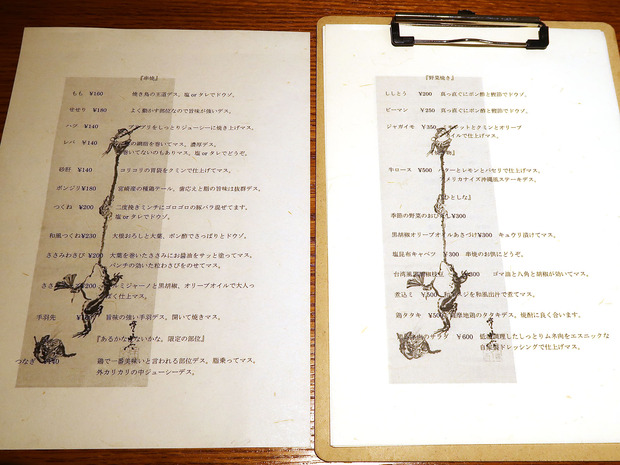 『串焼』
もも ¥160 焼き鳥の王道デス。塩orタレでドウゾ。
せせり ¥180 よく動かす部位なので旨味が強いデス。
ハツ ¥140 プリをしっとりジューシーに仕上げマス。
レバ ¥140 の網脂を巻いてマス。濃厚デス。
巻いてないのもありマス。塩orタレでどうぞ。
砂肝 ¥140 コリコリの胃袋をクミンで仕上げてマス。
ボンジリ ¥180 宮崎産の種鶏テール。歯応えと脂の旨味は抜群デス。
つくね ¥200 二度挽きミンチにゴロゴロの豚バラ混ぜてます。
塩orタレでドウゾ。
和風つくね¥230 大根おろしと大葉、ポン酢でさっぱりとドウゾ。
ささみわさび ¥200 大葉を巻いたささみにお醤油をサッと塗ってマス。
パンチの効いた粒わさびをのせてマス。
ささ ¥200 ミジャーノと黒胡椒、オリーブオイルで大人っ
ぽく仕上マス。
手羽先 旨味の強い手羽デス。開いて焼きマス。
『あるかな？ないかな。限定の部位』
つなぎ 鶏で一番美味いと言われる部位デス。脂乗ってマス。
外カリカリの中ジューシーデス。
『野菜焼き』
ししとう ¥200 真っ直ぐにポン酢と鰹節でドウゾ。
ピーマン ¥250 真っ直ぐにポン酢と鰹節でドウゾ。
ジャガイモ ¥350 ットとクミンとオリーブ
オイルで仕上マス。
物』
牛ロース ¥500 バターとレモンとパセリで仕上げてマス。
メリカサイズ沖縄風ステーキデス。
『ひとしな』
季節の野菜のおひたし ¥300
黒胡椒オリーブオイルあさづけ¥300 キュウリ漬けてマス。
塩昆布キャベツ ¥300 串焼のお供にどうぞ。
台湾風 枝豆 ¥300 ゴマ油と八角と胡椒が効いてマス。
煮込ミ ¥500 スジを和風出汁で煮てマス。
鶏タタキ ¥500 摩地鶏のタタキデス。焼酎に良く合います。
サラダ ¥600 低温調理したしっとりムネ肉をエスニックな
自家製ドレッシングで仕上げマス。